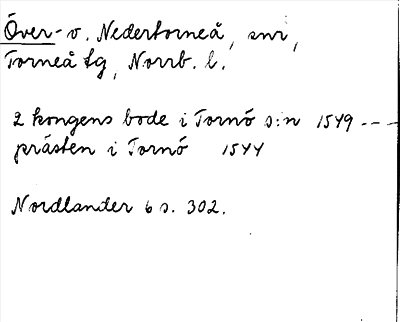 Över- o. Nedertorneå, snr,
Torneå tg, Norrb. l.
2 kongens bode i Tornö s:n 1549 -- -
prästen i Tornö 1544
Nordlander 6 s. 302.